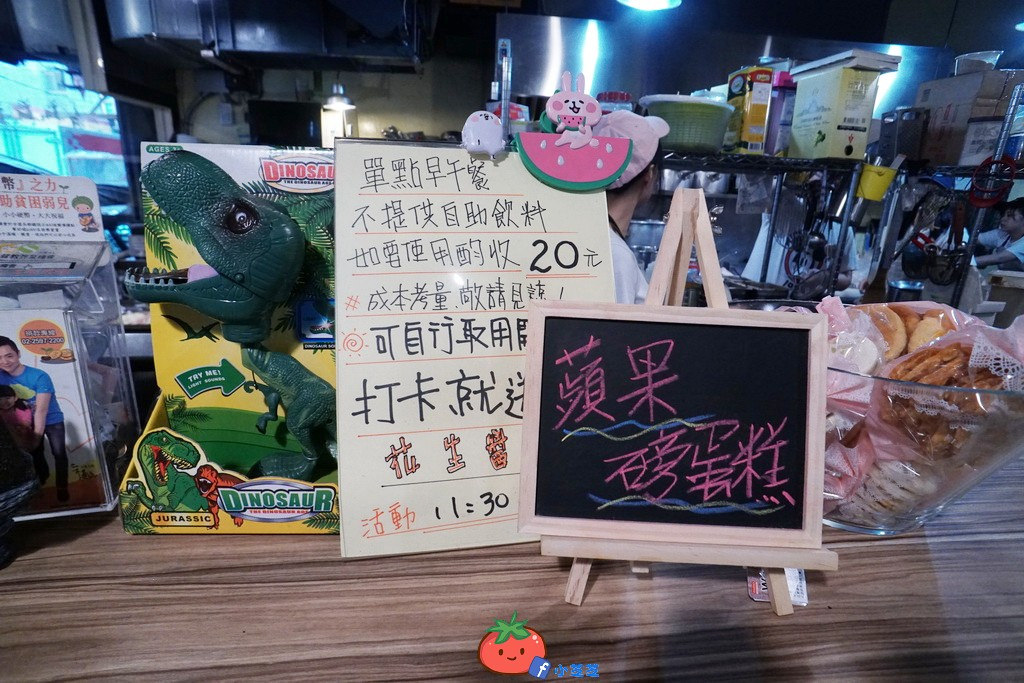 幣』之力
助貧困弱兒
小小硬幣,大大祝福
02-2587-2206
AGES 3
DINOSAUR
TRY ME!
LIGHT SOUNDS
DINOSAUR
THE DINOSAUR
JURASSIC
單點早午餐
不提供自助飲料
如需使用酌收 20元
#成本考量,敬請見諒!
可自行取用
打卡就送
花生醬
活動 11:30
蘋果
磅蛋糕
f 小芝芝